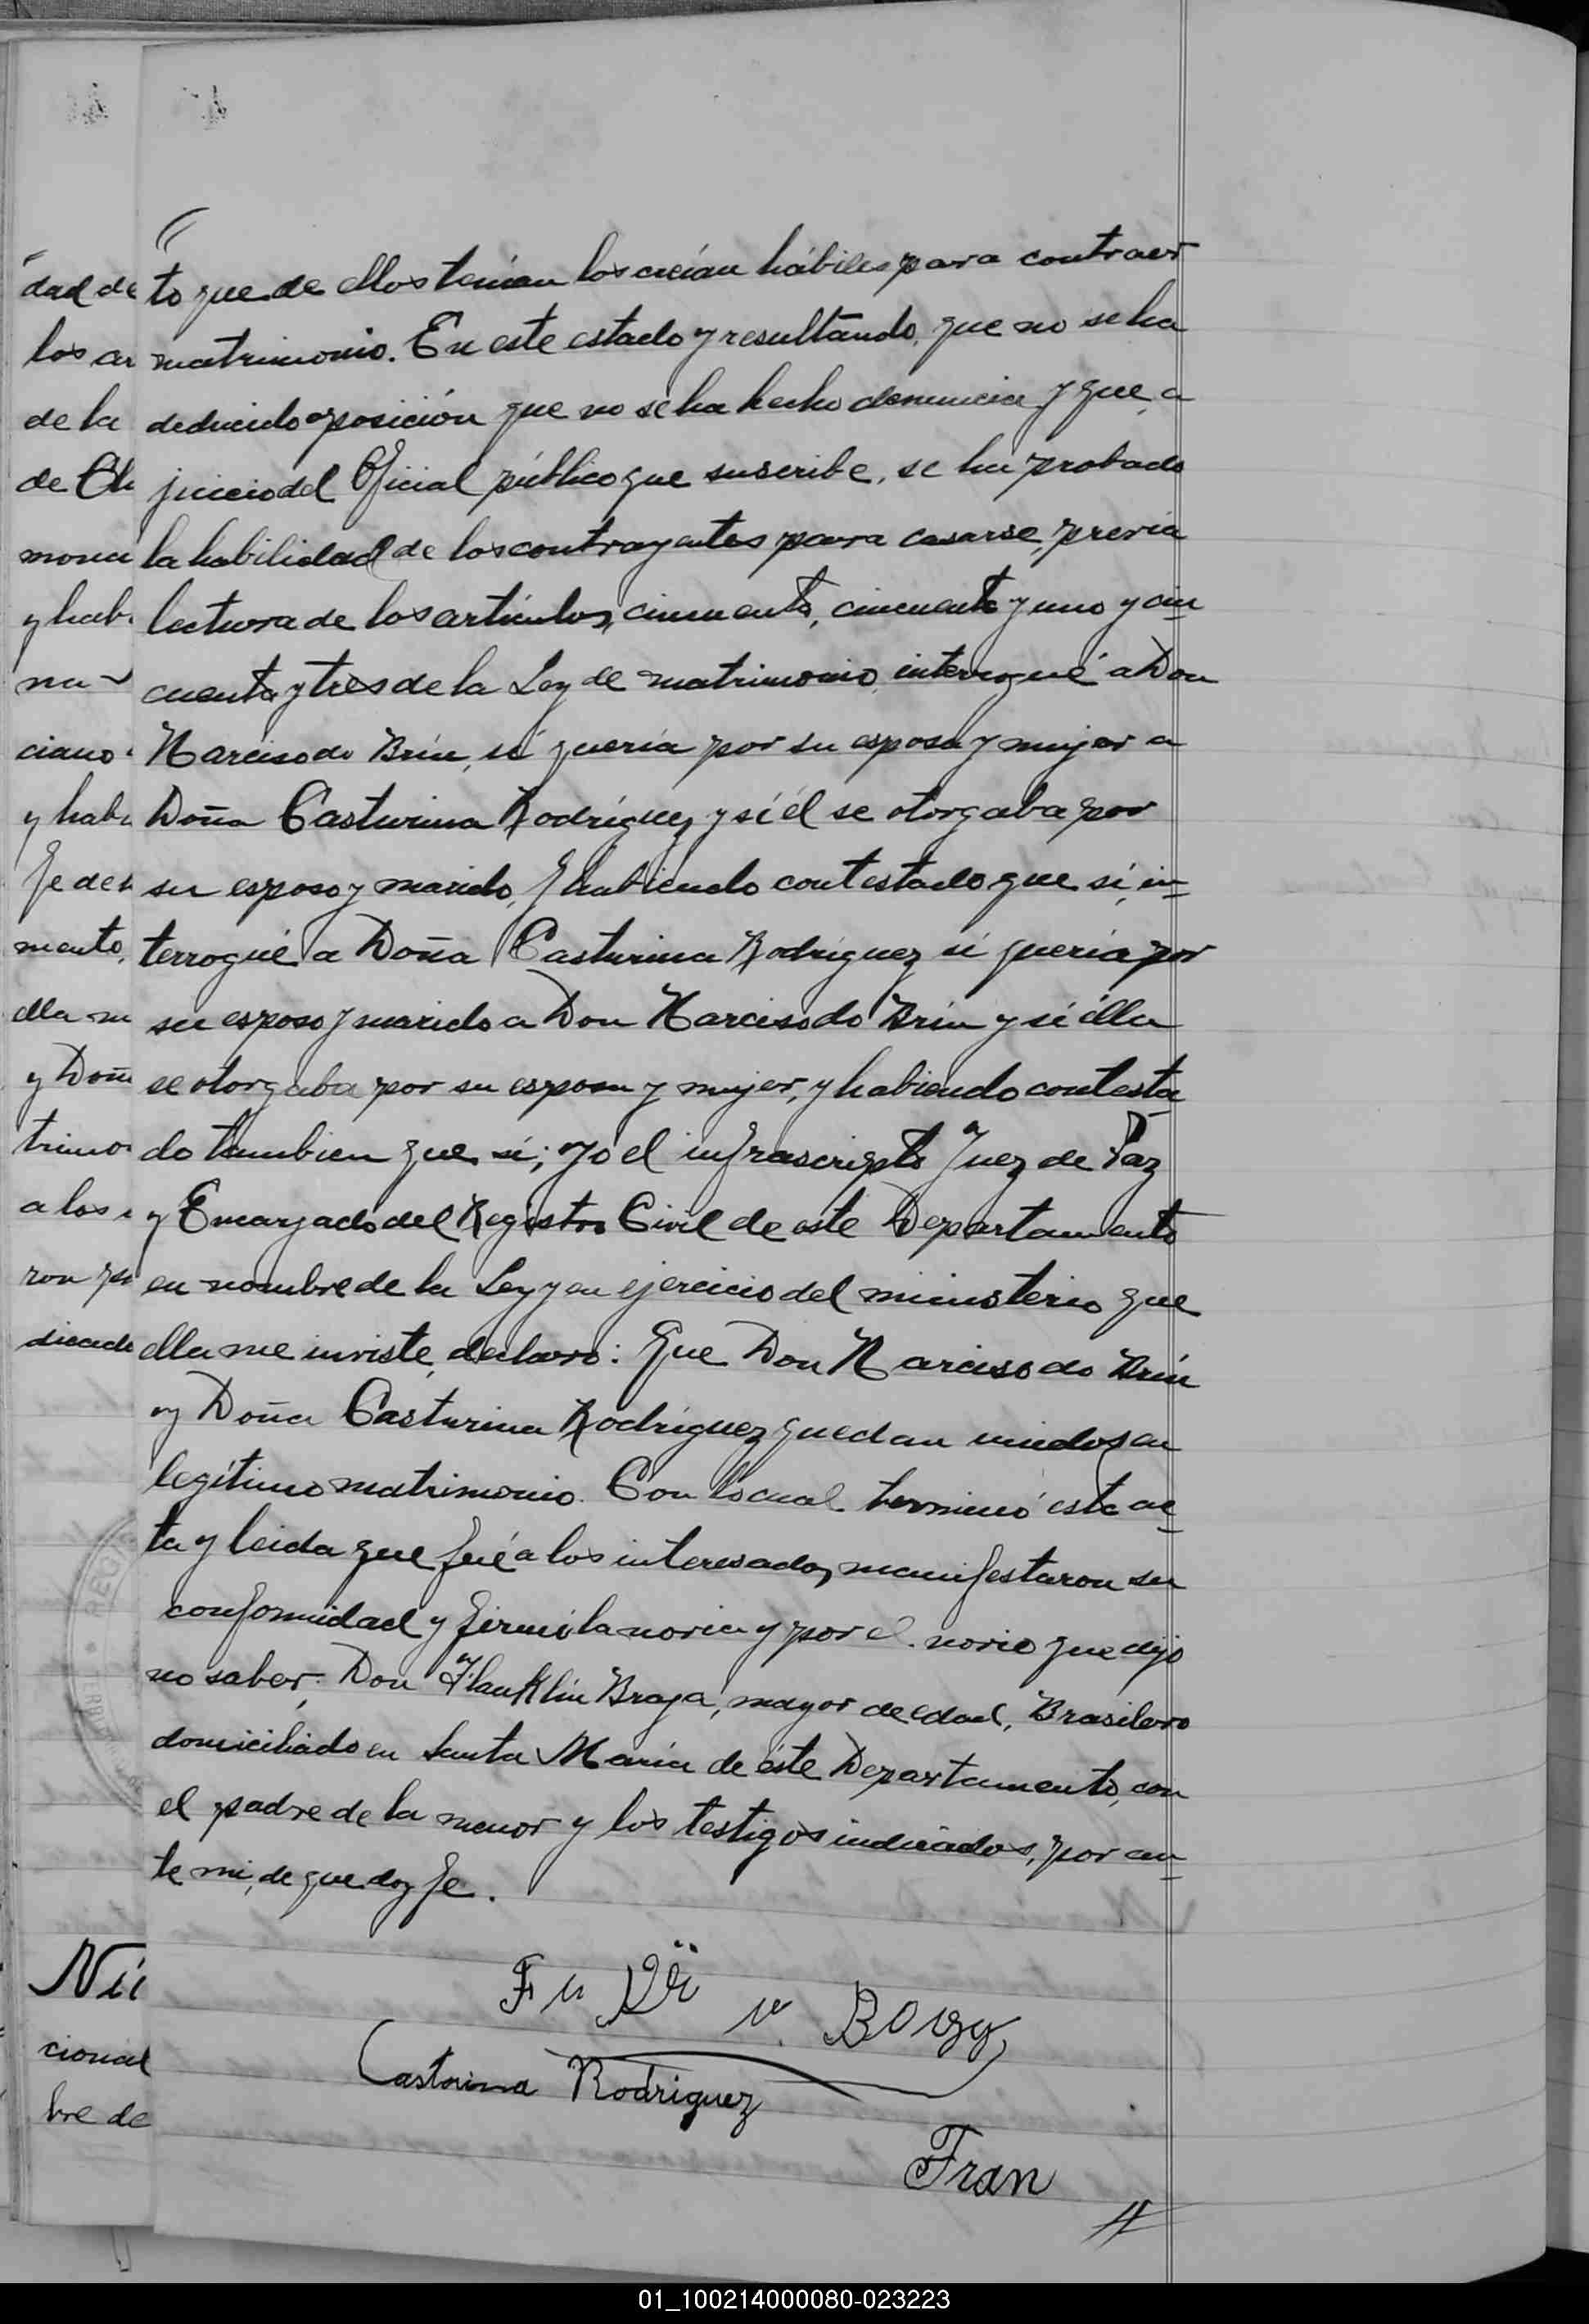 to que de ellos tenían los creían hábiles para contraer
matrimonio. En este estado y resultando, que no se ha
deducido oposición que no se ha hecho denuncia y que, a
juicio del Oficial público que suscribe, se ha probado
la habilidad de los contrayentes para casarse, previa
lectura de los artículos, cincuenta, cincuenta y uno y cin
cuenta y tres de la Ley de matrimonio, interrogué a Don
Narciso do Brin, si quería por su esposa y mujer a
Doña Casturina Rodríguez y si él se otorgaba por
su esposo y marido, y habiendo contestado que si, in=
terrogué a Doña Casturina Rodriguez si quería por
su esposo y marido a Don Narciso do Brin y si élla
se otorgaba por su esposa y mujer, y habiendo contesta
do tambien que si; yo el infrascripto Juez de Paz
y Encargado del Registro Civil de este Departamento
en nombre de la Ley y en ejercicio del ministerio que
ella me inviste, declaro: Que Don Narciso do Brin
y Doña Casturina Rodriguez quedan unidos en
legítimo matrimonio. Con lo cual terminó esta ac=
ta y leida que fué a los interesados, manifestaron su
conformidad y firmó la novia y por el novio que dijo
no saber, Don Flanklin Braga, mayor de edad, Brasilero
domiciliado en Santa María de éste Departamento, con
el padre de la menor y los testigos indicados, por an=
te mi, de que doy fe.
Castorina Rodriguez
Fran
dad de
los
de la
de
y hab
ciano
y hab
fe de
mento,
ella
y Doñ
trimo
a los
ron
cional
bre de
01_100214000080-023223